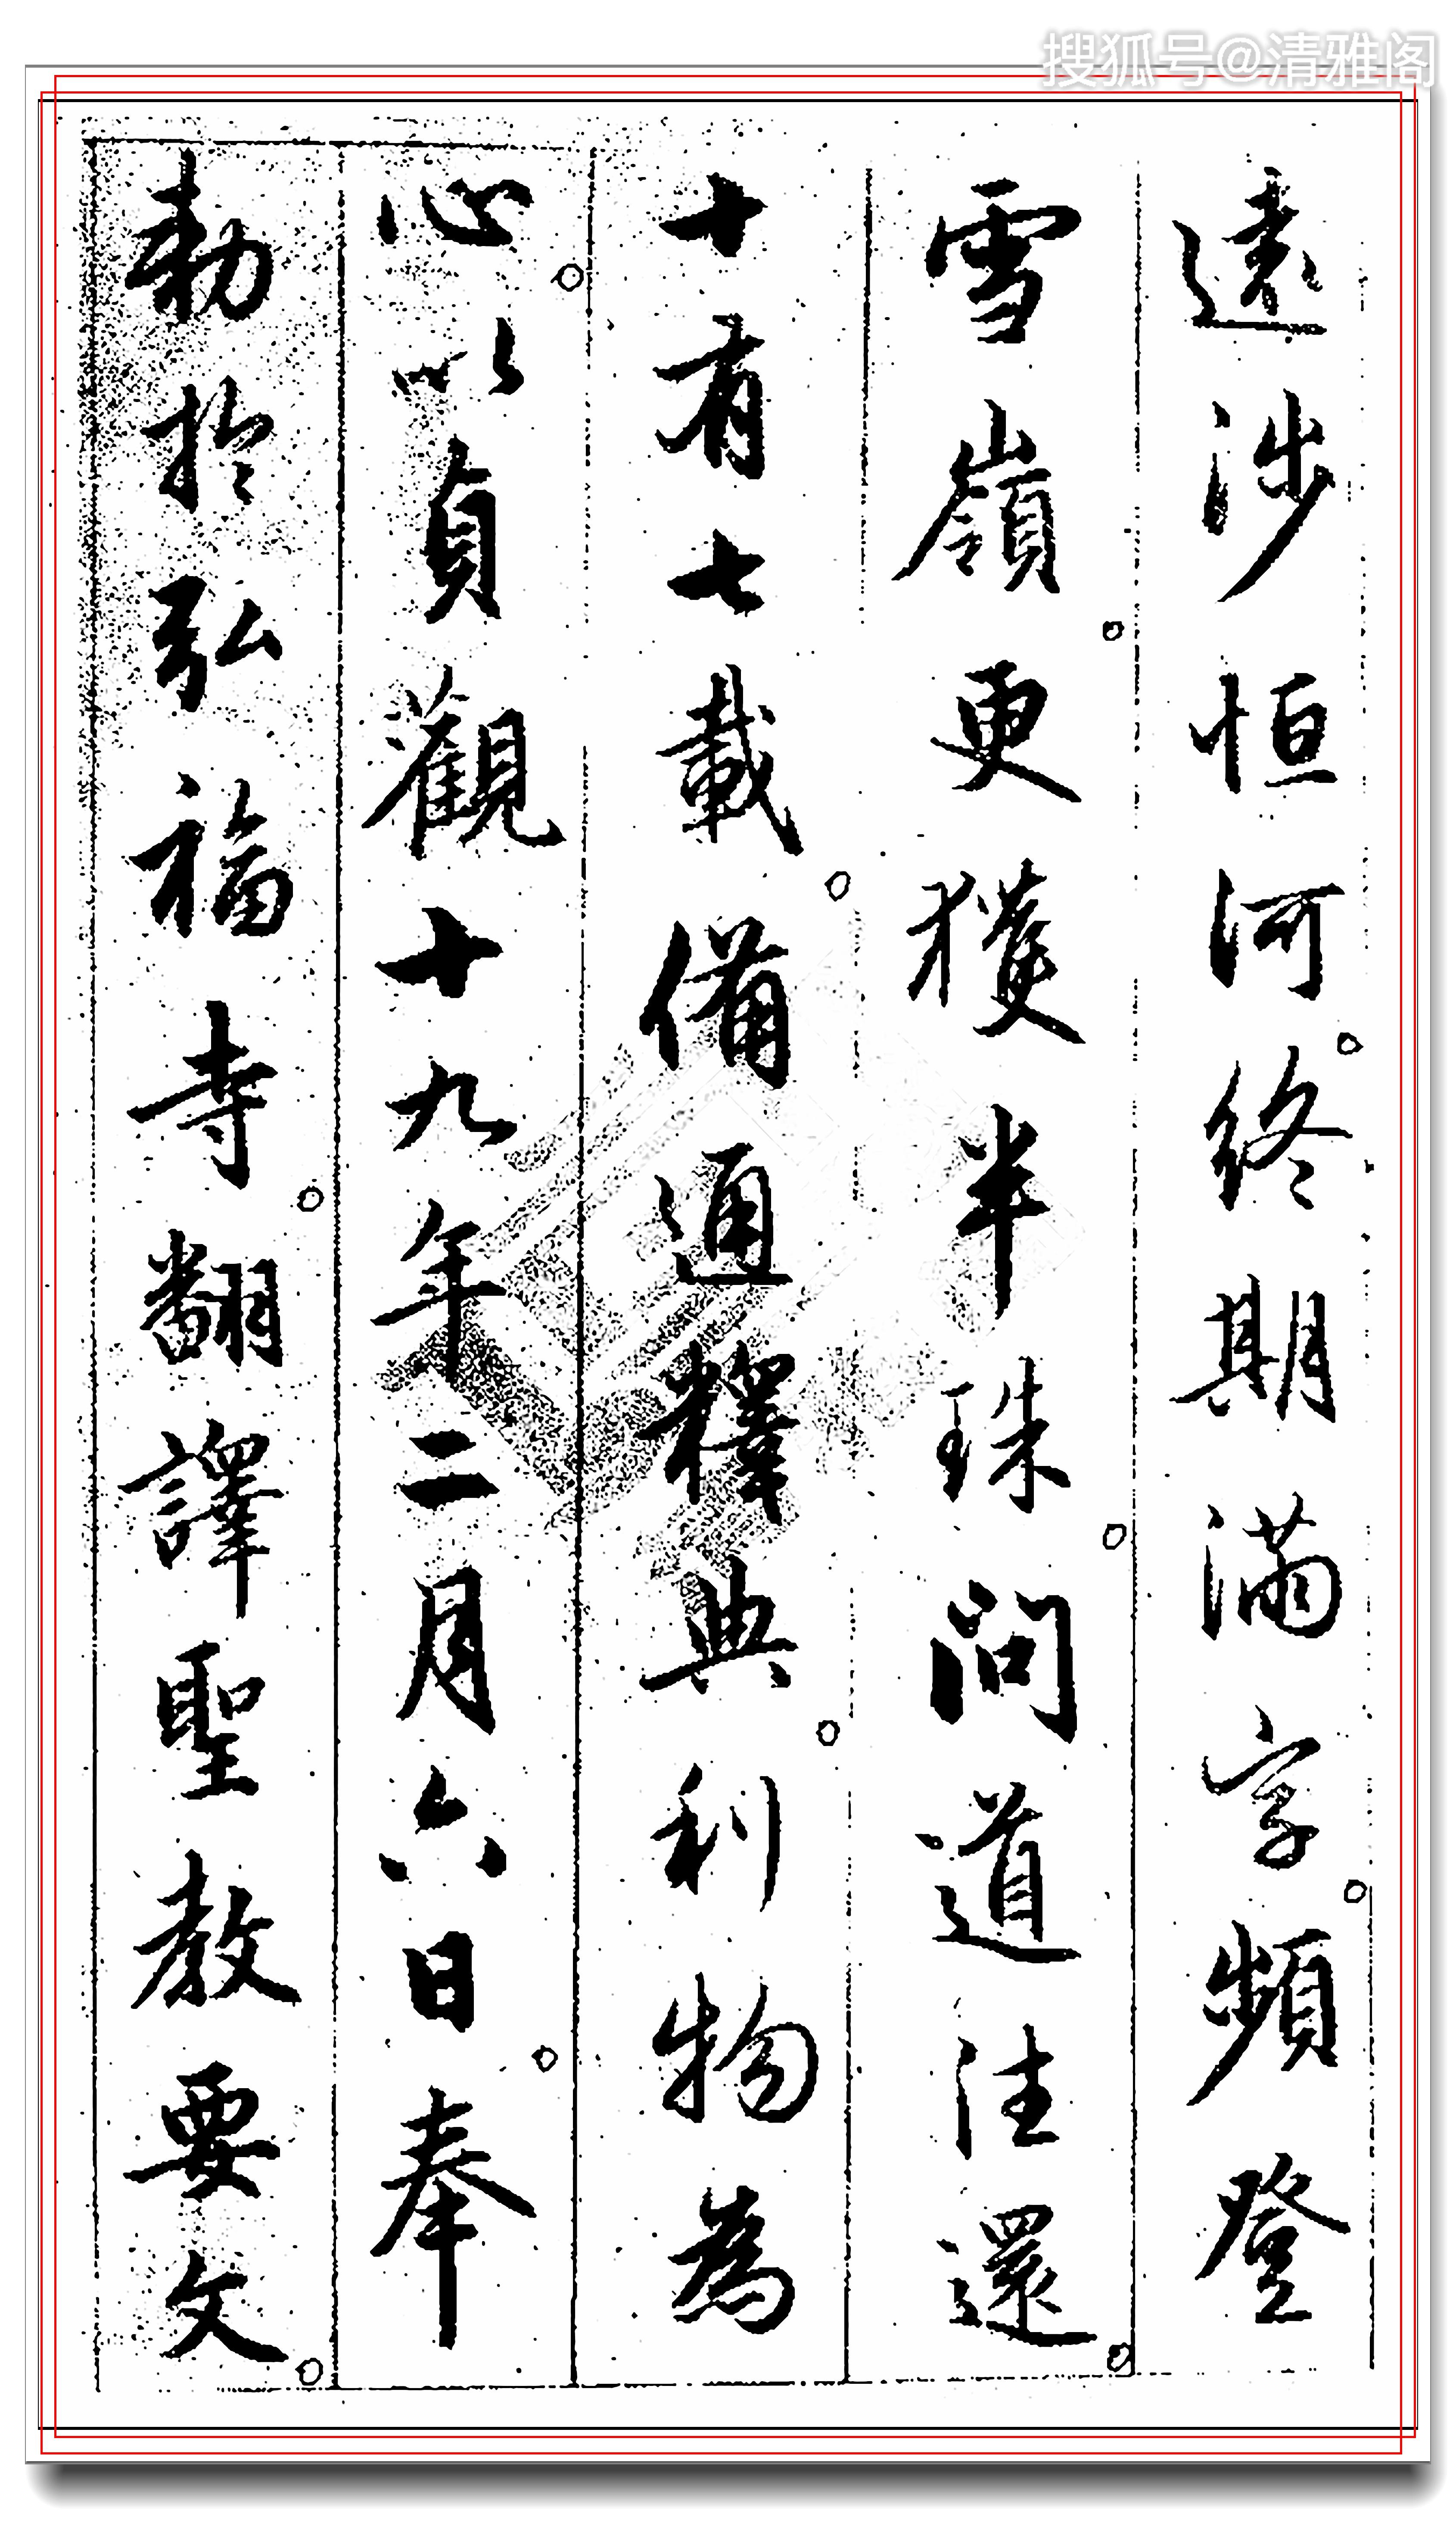 搜狐号@清雅阁
遠涉恒河終期滿字頻登
雪嶺更獲半珠問道往還
十有七載備通釋典利物為
心以貞觀十九年二月六日奉
勅於弘福寺翻譯聖教要文